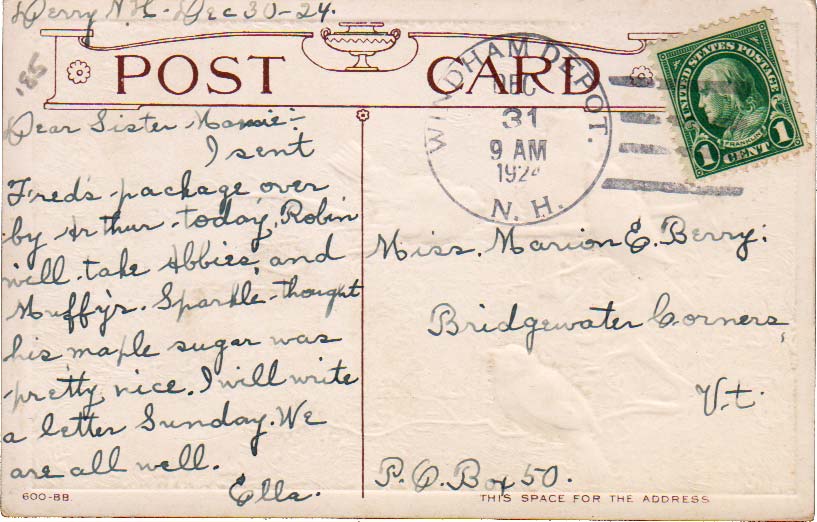 Derry N.H. - Dec 30-24.
'85
POST CARD
WINDHAM DEPOT.
DEC
31
9 AM
1924
N. H.
UNITED STATES POSTAGE
FRANKLIN
1 CENT 1
Dear Sister Mamie:-
I sent
Fred's package over
by Arthur today, Robin
will take Abbies, and
Muffy's. Sparkle thought
his maple sugar was
pretty nice. I will write
a letter Sunday. We
are all well.
Ella.
Miss. Marion E. Berry:
Bridgewater Corners,
Vt.
P.O. Box 50.
600-BB.
THIS SPACE FOR THE ADDRESS